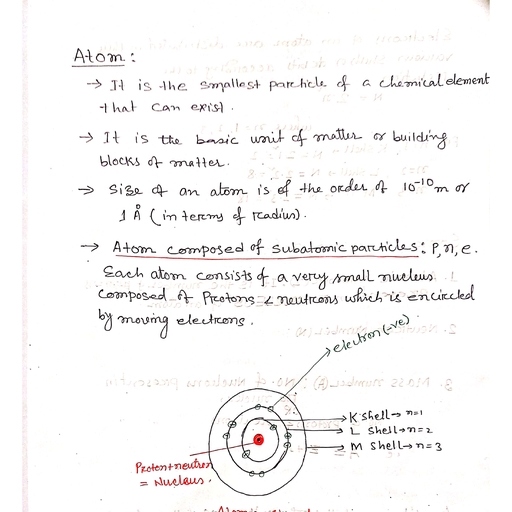 Atom:
→ It is the smallest particle of a chemical element
that can exist.
→ It is the basic unit of matter or building
blocks of matter.
→ Size of an atom is of the order of 10⁻¹⁰ m or
1 Å (in terms of radius).
→ Atom composed of subatomic particles: p, n, e.
Each atom consists of a very small nucleus
composed of Protons & neutrons which is encircled
by moving electrons.
electron (-ve)
K shell → n=1
L shell → n=2
M shell → n=3
Proton+neutron
= Nucleus.